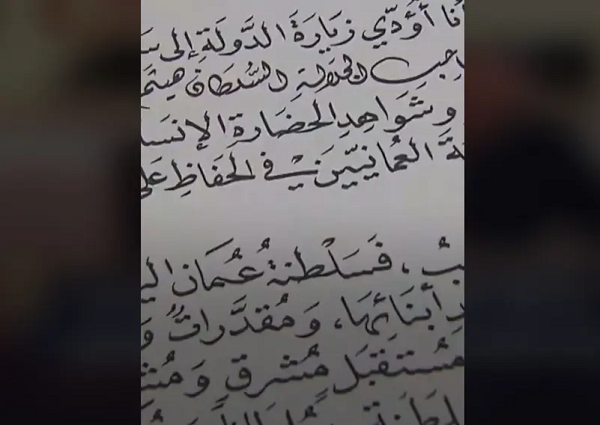 أنا أؤدّي زيارةَ الدَّولةِ إلى
الجلالةِ السُّلطان هيثم
وشواهدِ الحضارةِ الإنسا
العُمانيّين في الحفاظِ على
، فسَلْطنةُ عُمان الي
أبنائِها، ومُقدَّراتٌ و
مُستقبلٍ مُشرقٍ ومُ